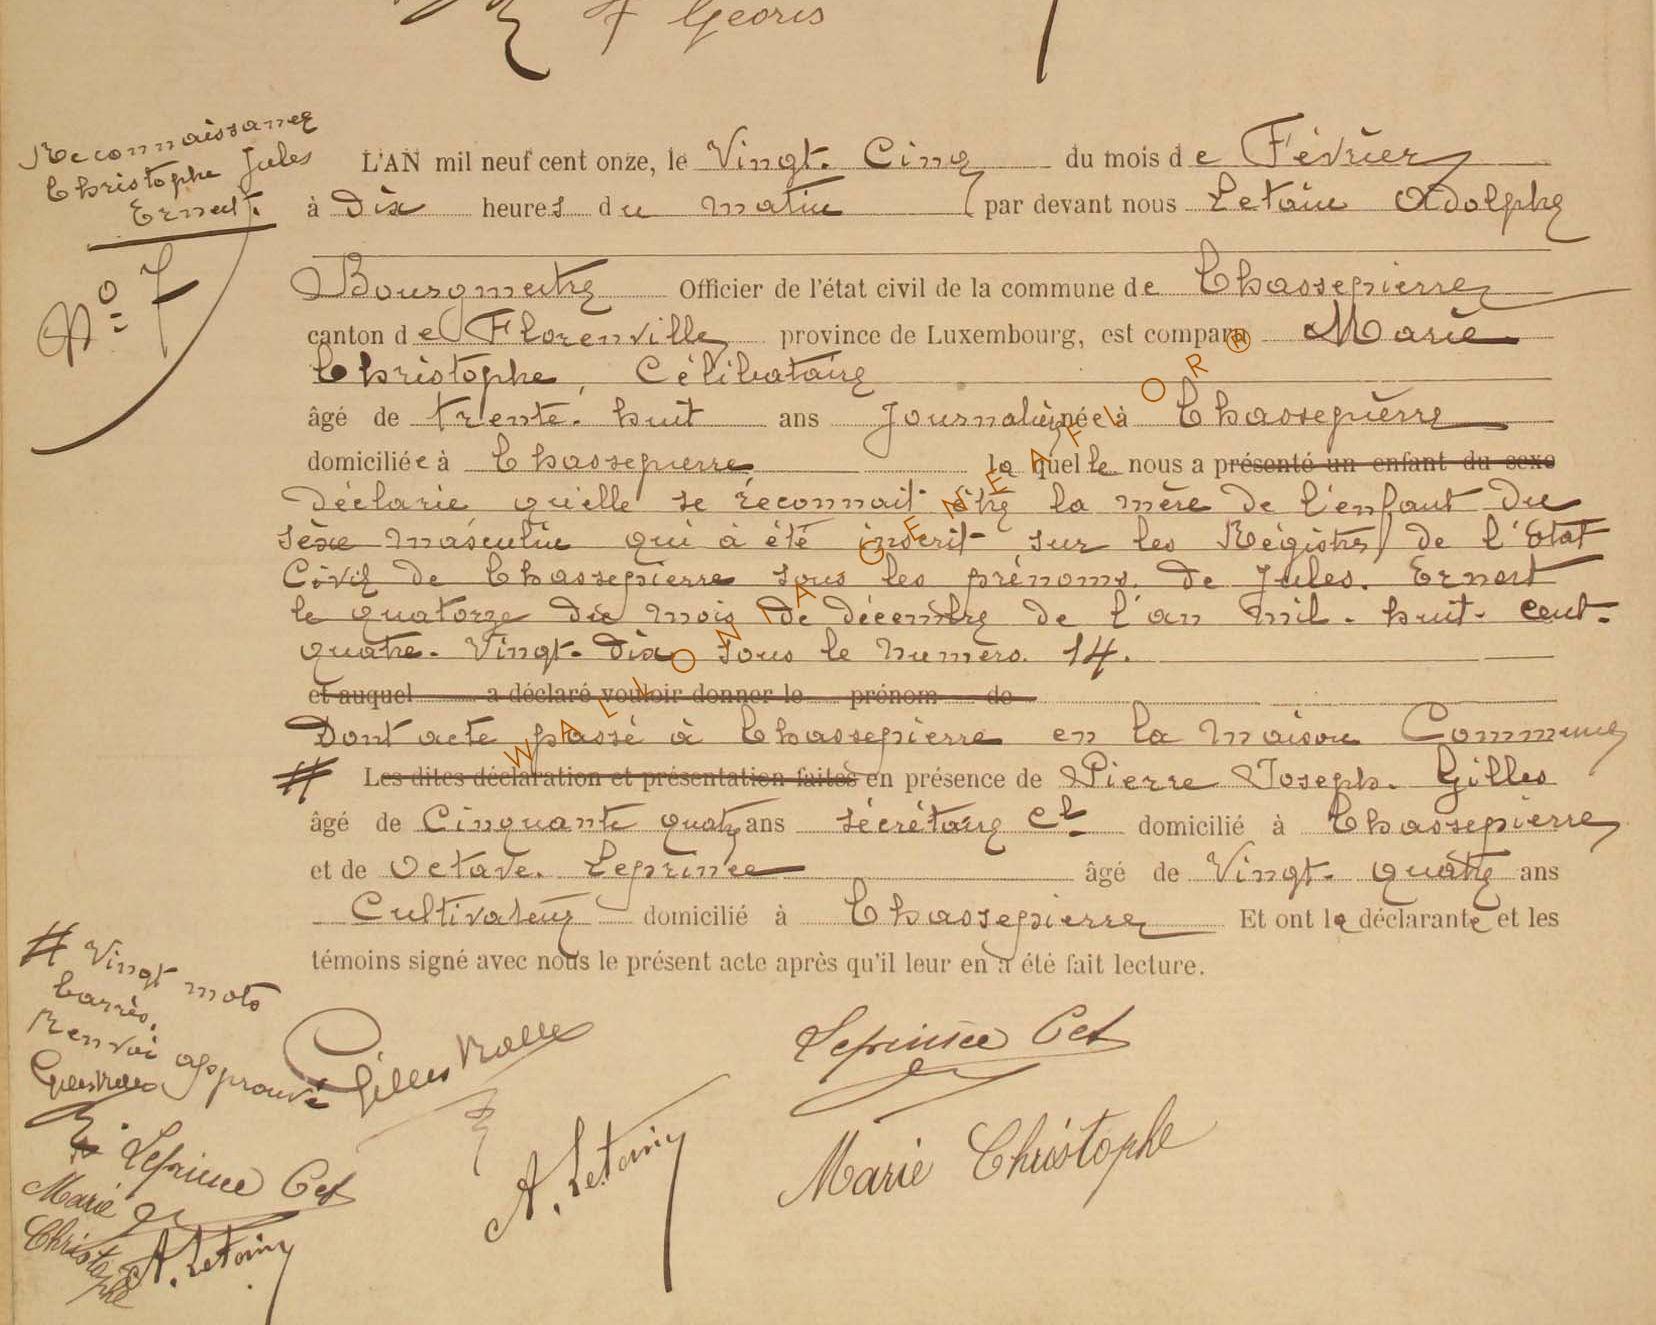 F Georis
Reconnaissance
Christophe Jules
Ernest.
No 7
L'AN mil neuf cent onze, le Vingt. Cinq du mois de Février
à dix heures du matin par devant nous Letain Adolphe
Bourgmestre Officier de l'état civil de la commune de Chassepierre
canton de Florenville province de Luxembourg, est comparu Marie
Christophe, Célibataire
âgé de trente. huit ans Journalière née à Chassepierre
domiciliée à Chassepierre laquelle nous a présenté un enfant du sexe
déclarie qu'elle se réconnait être la mère de l'enfant du
sèxe masculin qui à été inscrit sur les Régistres de l'Etat
Civil de Chassepierre sous les prénoms. de Jules. Ernest
le quatorze du mois de décembre de l'an mil. huit. cent.
quatre. Vingt. dix sous le numéro. 14.
et auquel a déclaré vouloir donner le prénom de
Dont acte passé à Chassepierre en la maison Commune
# Les dites déclaration et présentation faites en présence de Pierre Joseph. Gilles
âgé de Cinquante quatre ans sécrétaire Cl domicilié à Chassepierre
et de Octave. Leprince âgé de Vingt. quatre ans
Cultivateur domicilié à Chassepierre Et ont la déclarante et les
témoins signé avec nous le présent acte après qu'il leur en a été fait lecture.
# Vingt mots
barrés.
Renvoi approuvé
Gilles
Leprince Oct
Marie
Christophe
A. Letain
Gilles
Leprince Oct
A. Letain
Marie Christophe
WALLONIA GENEAFLOR ®